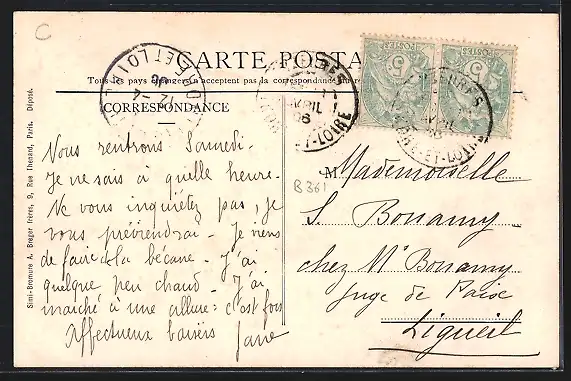 C
CARTE POSTA
Tous les pays étrangers n'acceptent pas la correspondance au
CORRESPONDANCE
Simi-Bromure A. Breger frères, 9, Rue Thenard, Paris. Déposé.
POSTES
POSTES
5
5
AVRIL
ET-LOIRE
AVRIL
ET-LOIR
ET LOIR
B 361
Nous rentrons Samedi.
Je ne sais à quelle heure.
Ne vous inquiétez pas, je
vous préviendrai. Je viens
de faire de la bécane. J'ai
quelque peu chaud. J'ai
marché à une allure: c'est fou
Affectueux baisers Jane
Mademoiselle
S. Bonamy
chez Mr Bonamy
Juge de Paix
Ligueil